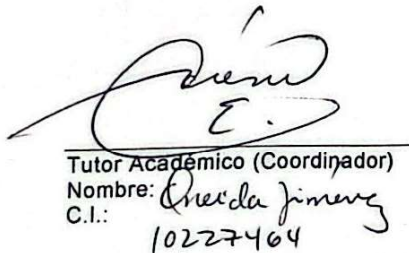 E.
Tutor Académico (Coordinador)
Nombre: Oneida Jimenez
C.I.:
10227464